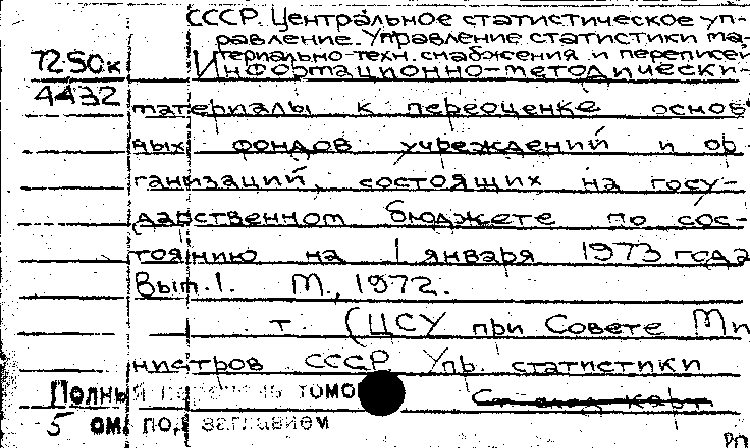 СССР. Центральное статистическое уп-
равление. Управление статистики ма-
72-50к
териально-техн. снабжения и переписей
Информационно-методически-
4432
материалы к переоценке основ
ных фондов учреждений и ор
ганизаций, состоящих на госу-
дарственном бюджете по сос-
тоянию на 1 января 1973 года
Вып. 1. М., 1972.
т. (ЦСУ при Совете Ми
нистров СССР Упр. статистики
Полный перечень томов
5 см. под заглавием